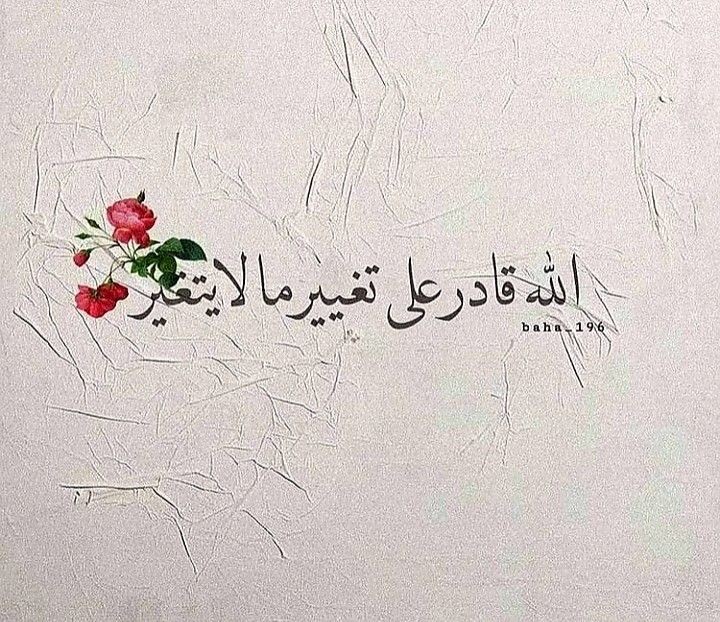 الله قادر على تغيير ما لا يتغير
baha_196